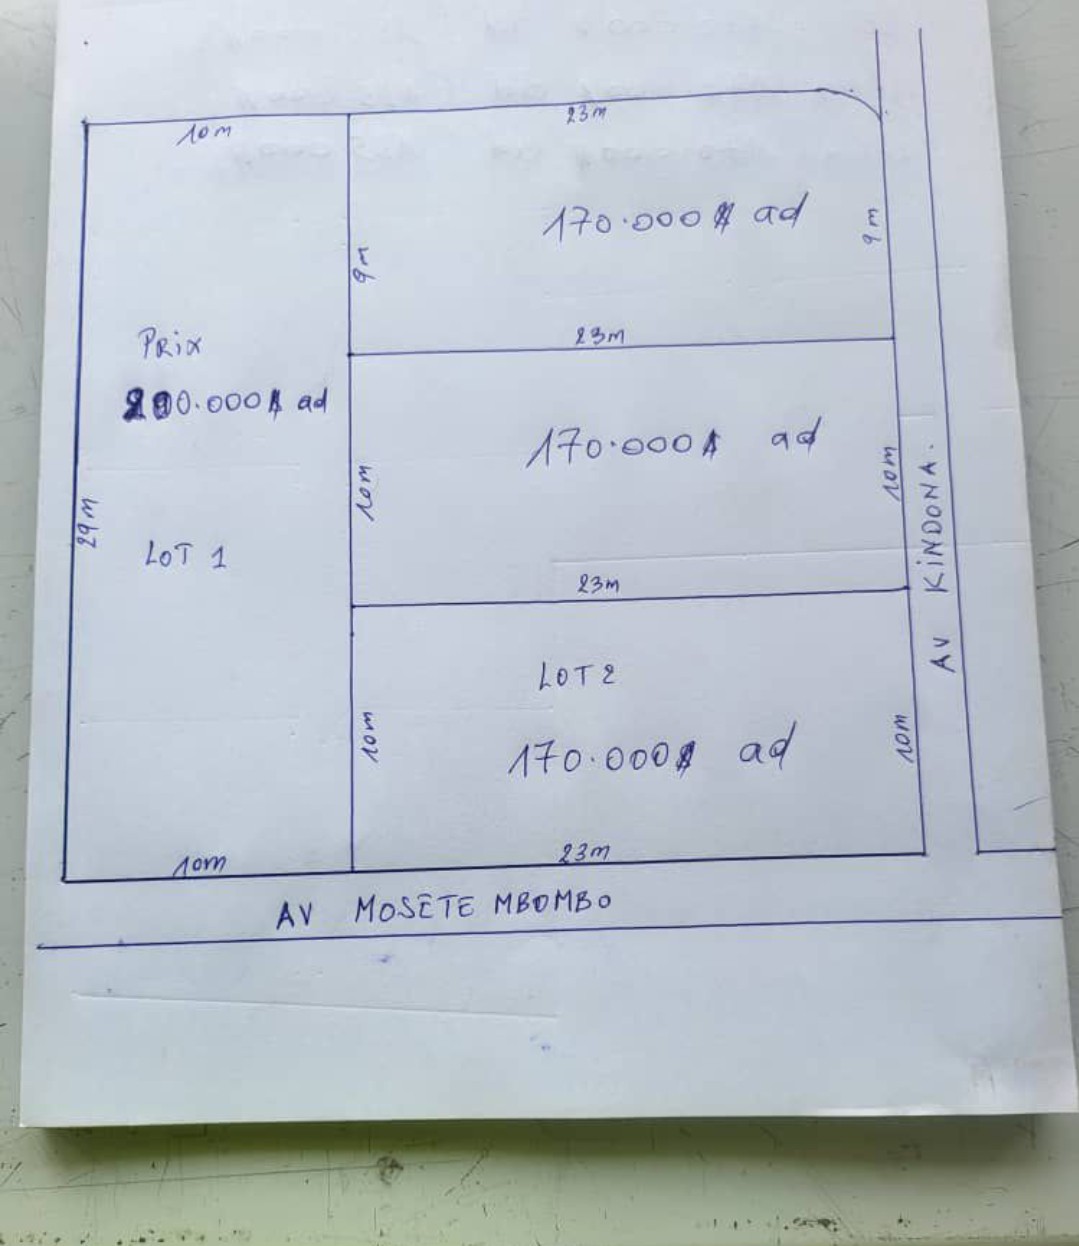 10m
23m
170.000$ ad
9m
9m
23m
Prix
ad
170.000$ ad
10m
10m
29m
LOT 1
23m
AV KINDONA.
LOT 2
10m
10m
170.000$ ad
10m
23m
AV MOSETE MBOMBO